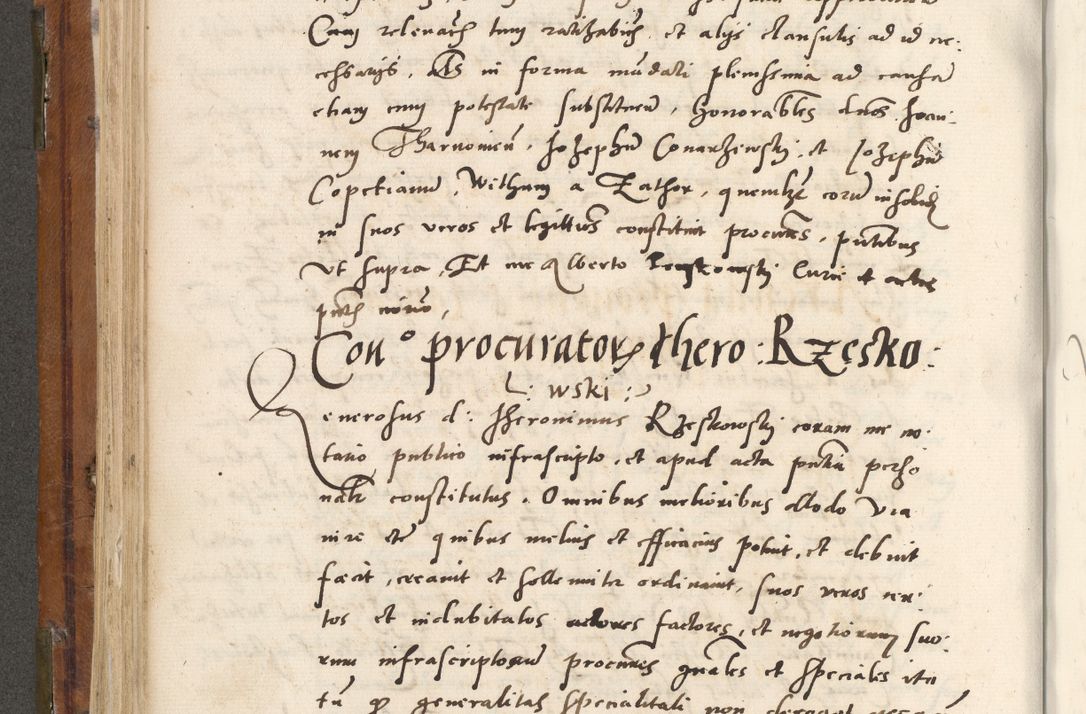 Cum relevaõn tum ratihabiõn, et alijs clausulis ad id ne-
cessarijs, Als in forma mãdati plenissima ad causã
etiam cum potestate substituen̄, honorabiles dnos Joan:
nem Tharnowien̄, Jozephũ Conarzewskj, et Jozephũ
Copeczianũ, Withum a Rathor, quemlibet eorũ insolid
in suos veros et legittiõs constituit procures, pñtibus
vt supra, Et me Alberto Curie et actus
pñtis notrio,
Con° procuratorũ Hero: Rzęsko:
wski:
Generosus d: Hieronimus Rzęskowskj coram me no-
tario publico infrascripto, et apud acta pñtia perso
nalr constitutus. Omnibus melioribus Modo Via
iure etc quibus melius et efficacius potuit, et debuit
fecit, creavit et sollemniter ordinavit, suos veros cer:
tos et indubitatos actores factores, et negotiorum suo:
rum infrascriptorũ procures gnales et speciales ita
tñ qõ generalitas specialitati non deroget